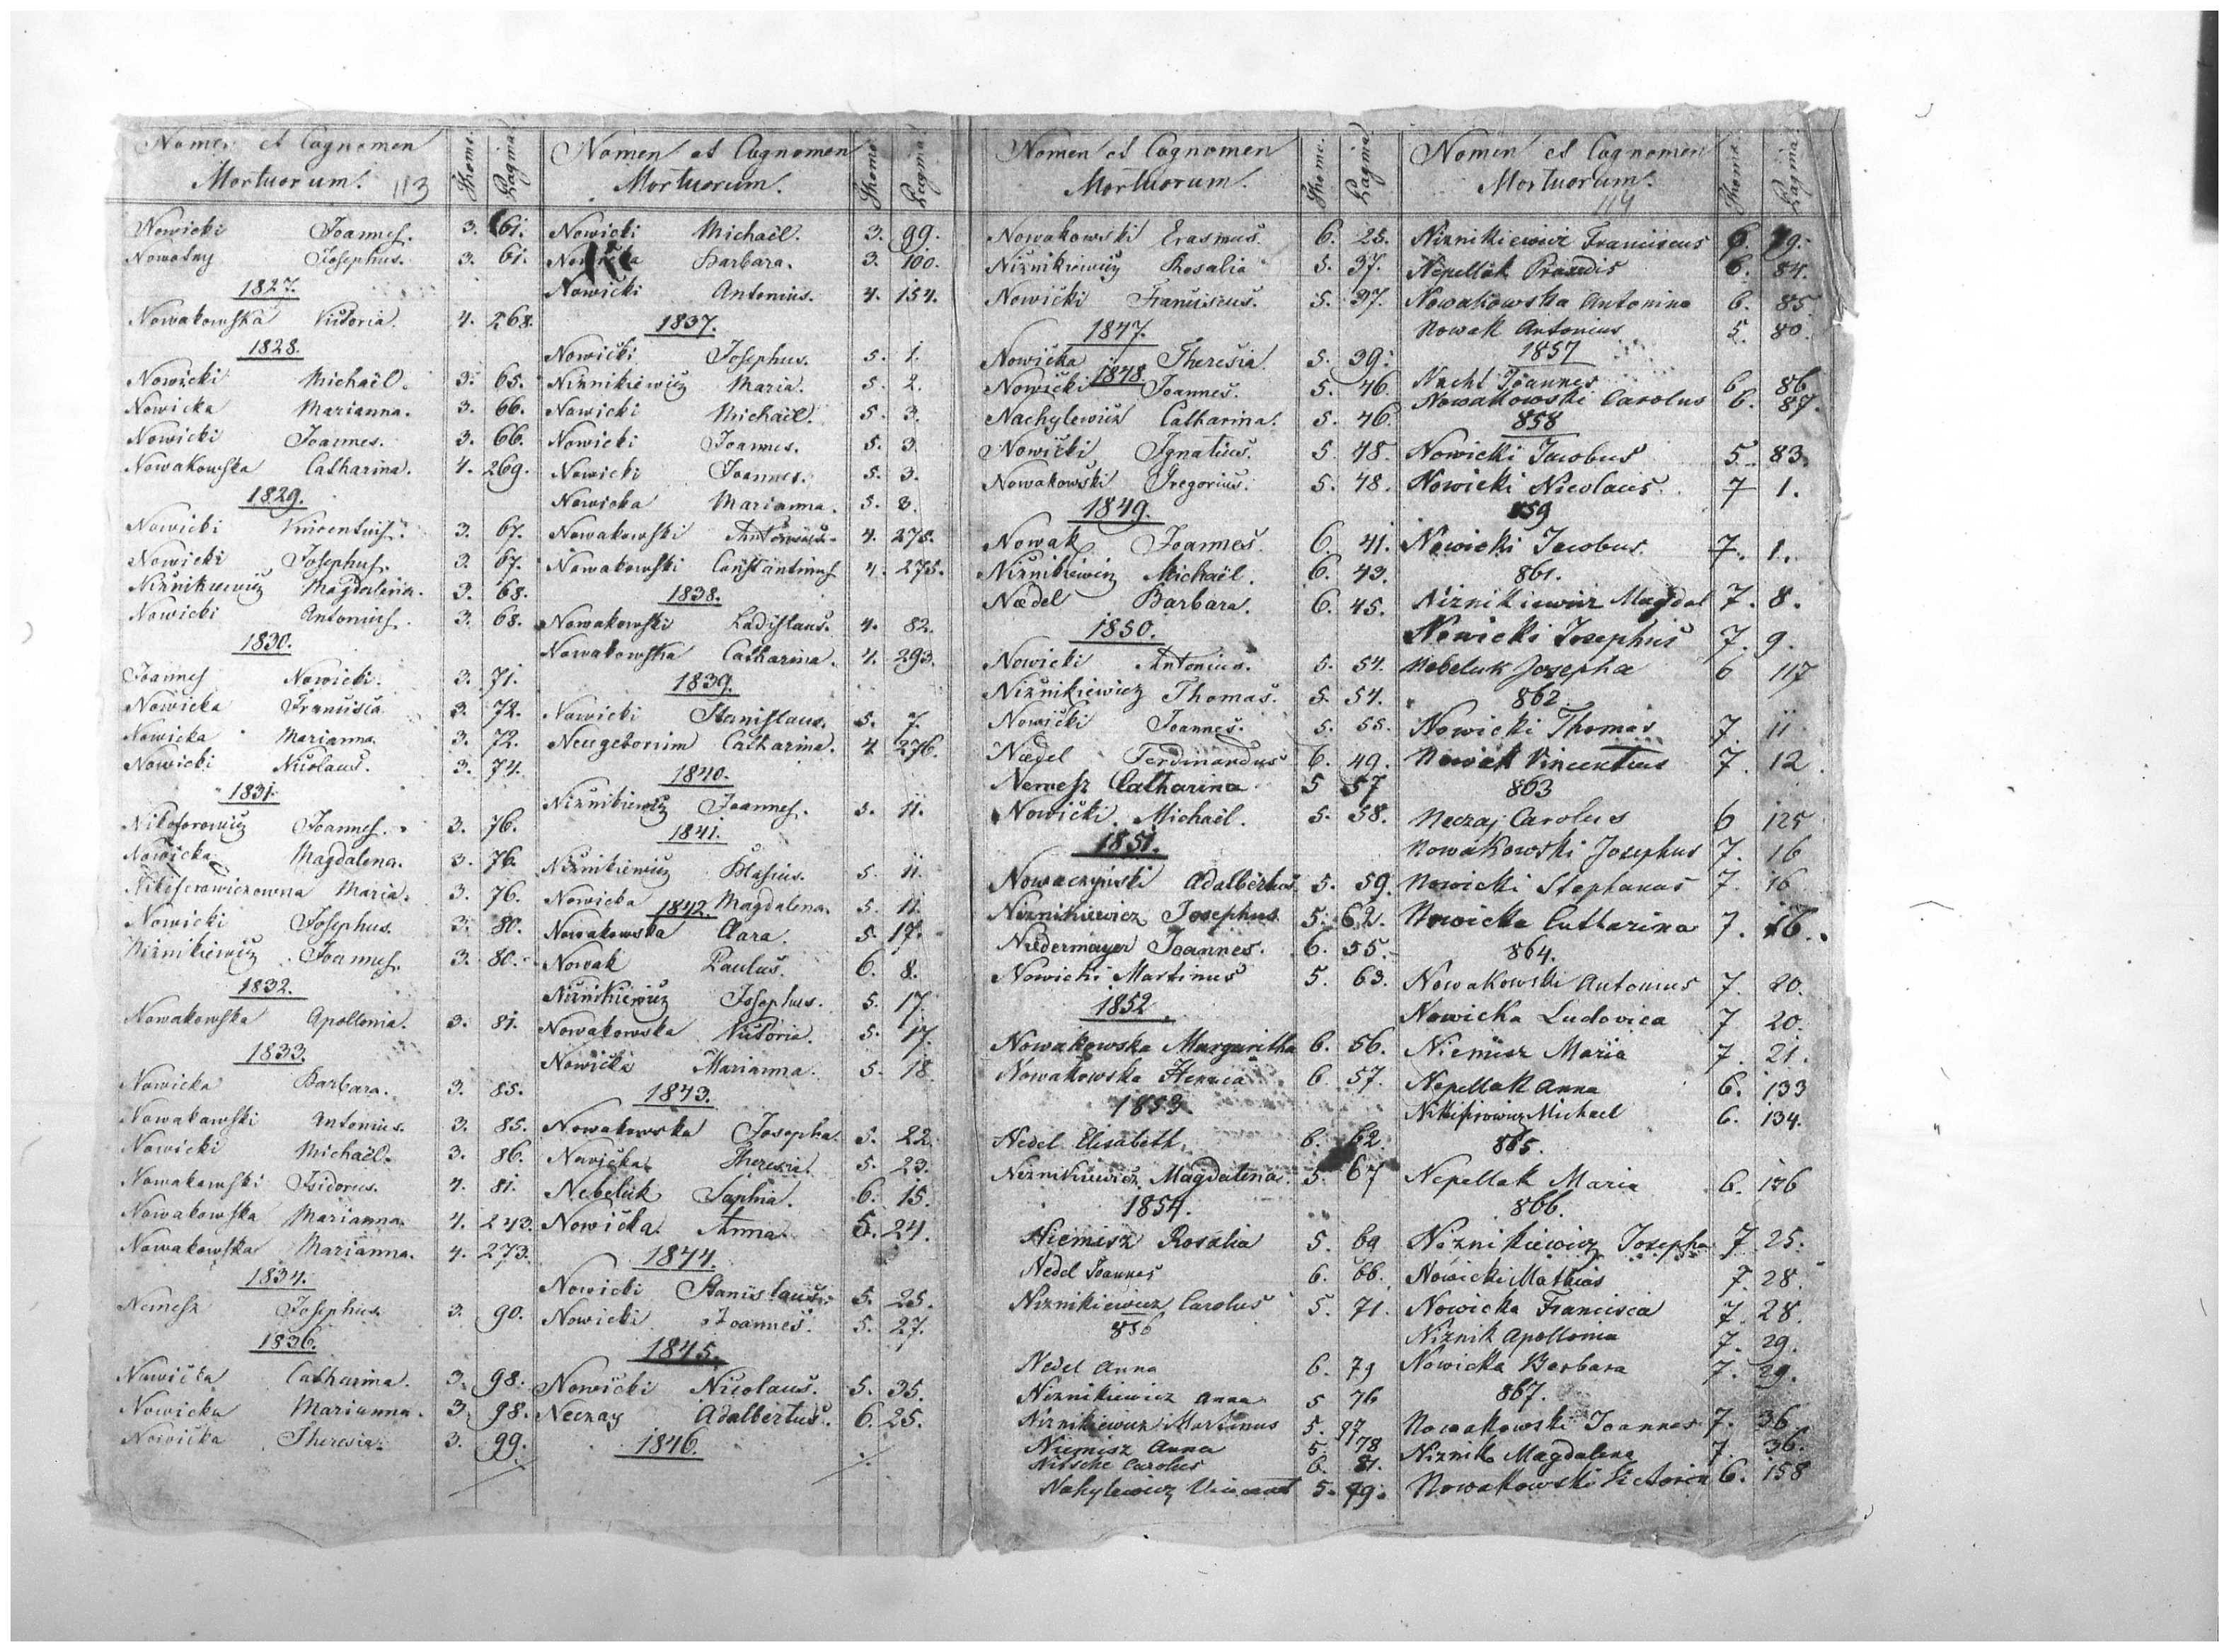 Nomen et Cognomen
Mortuorum. 113
Thoms. Pagina
Nowicki Joannes. 3. 61.
Nowotny Josephus. 3. 61.
1827.
Nowakowska Victoria. 4. 268.
1828.
Nowicki Michaël. 3. 65.
Nowicka Marianna. 3. 66.
Nowicki Joannes. 3. 66.
Nowakowska Catharina. 4. 269.
1829.
Nowicki Vincentius. 3. 67.
Nowicki Josephus. 3. 67.
Nižnikiewicz Magdalena. 3. 68.
Nowicki Antonius. 3. 68.
1830.
Joannes Nowicki. 3. 71.
Nowicka Francisca 3. 72.
Nowicka Marianna. 3. 72.
Nowicki Nicolaus. 3. 74.
1831.
Nikoforowicz Joannes. 3. 76.
Nowicka Magdalena. 3. 76.
Nikiferowiczowna Maria. 3. 76.
Nowicki Josephus. 3. 80.
Nižnikiewicz Joannes. 3. 80.
1832.
Nowakowska Apollonia. 3. 81.
1833.
Nowicka Barbara. 3. 85.
Nowakowski Antonius. 3. 85.
Nowicki Michaël. 3. 86.
Nowakowski Isidorus. 4. 81.
Nowakowska Marianna. 4. 243.
Nowakowska Marianna. 4. 273.
1834.
Nemesz Josephus 3. 90.
1836.
Nowicka Catharina. 3. 98.
Nowicka Marianna. 3. 98.
Nowicka Theresia. 3. 99.
Nomen et Cognomen
Mortuorum.
Thoms. Pagina
Nowicki Michaël. 3. 99.
Nowicka Barbara. 3. 100.
Nowicki Antonius. 4. 154.
1837.
Nowicki Josephus. 5. 1.
Nižnikiewicz Maria. 5. 2.
Nowicki Michaël. 5. 3.
Nowicki Joannes. 5. 3.
Nowicki Joannes. 5. 3.
Nowicka Marianna. 5. 3.
Nowakowski Antonius. 4. 275.
Nowakowski Constantinus 4. 275.
1838.
Nowakowski Ladislaus. 4. 82.
Nowakowska Catharina. 4. 293.
1839.
Nowicki Stanislaus. 5. 7.
Neugebornim Catharina. 4. 276.
1840.
Nižnikiewicz Joannes. 5. 11.
1841.
Nižnikiewicz Blasius. 5. 11.
Nowicka Magdalena. 5. 11.
1842.
Nowakowska Clara. 5. 17.
Nowak Paulus. 6. 8.
Nižnikiewicz Josephus. 5. 17.
Nowakowska Victoria. 5. 17.
Nowicka Marianna. 5. 18.
1843.
Nowakowska Josepha. 5. 22.
Nowicka Theresia. 5. 23.
Nebeluk Sophia. 6. 15.
Nowicka Anna 5. 24.
1844.
Nowicki Stanislaus. 5. 25.
Nowicki Joannes. 5. 27.
1845.
Nowicki Nicolaus. 5. 35.
Neczay Adalbertus. 6. 25.
1846.
Nomen et Cognomen
Mortuorum.
Thoms. Pagina
Nowakowski Erasmus. 6. 25.
Nižnikiewicz Rosalia 5. 37.
Nowicki Franciscus. 5. 37.
1847.
Nowicka Theresia. 5. 39.
1848
Nowicki Joannes. 5. 46.
Nachylewicz Catharina. 5. 46.
Nowicki Ignatius. 5. 48.
Nowakowski Gregorius. 5. 48.
1849.
Nowak Joannes. 6. 41.
Nižnikiewicz Michaël. 6. 43.
Nædel Barbara. 6. 45.
1850.
Nowicki Antonius. 5. 54.
Nižnikiewicz Thomas. 5. 54.
Nowicki Joannes. 5. 55.
Nædel Ferdinandus 6. 49.
Nemesz Catharina 5 57
Nowicki Michaël. 5. 58.
1851.
Nowaczyński Adalbertus. 5. 59.
Niznikiewicz Josephus 5. 62.
Nidermayer Joannes. 6. 55.
Nowicki Martinus 5. 63.
1852.
Nowakowska Margaritha 6. 56.
Nowakowska 6. 57.
1853.
Nedel Elisabeth 6. 62
Niznikiewicz Magdalena. 5. 67
1854.
Niemisz Rosalia 5. 69
Nedel Joannes 6. 66.
Niznikiewicz Carolus 5. 71.
856
Nedel Anna 6. 79
Niznikiewicz Anna 5 76
Niznikiewicz Martinus 5. 77
Niemisz Anna 5. 78
Nitsche Carolus 6. 81.
Nahylewicz Vincent 5. 79.
Nomen et Cognomen
Mortuorum.
114
Thoms. Pagina
Niznikiewicz Franciscus 6. 79.
Nepellak Praxedis 6. 84.
Nowakowska Antonina 6. 85.
Nowak Antonius 5. 80.
1857
Necht Joannes 6 86
Nowakowski Carolus 6. 87.
858
Nowicki Jacobus 5. 83.
Nowicki Nicolaus. 7 1.
859
Nowicki Jacobus. 7. 1.
861.
Niznikiewicz Magdal 7. 8.
Nowicki Josephus 7. 9.
Nebeluk Josepha 6 117
862
Nowicki Thomas 7. 11
Nowak Vincentius 7. 12.
863
Neczaj Carolus 6 125
Nowakowski Josephus 7. 16
Nowicki Stephanus 7. 16
Nowicka Catharina 7. 16.
864.
Nowakowski Antonius 7. 20.
Nowicka Ludovica 7. 20.
Niemisz Maria 7. 21.
Nepellak Anna 6. 133
Nikifirowicz Michael 6. 134.
865.
Nepellak Maria 6. 136
866.
Niznikiewicz Josepha 7. 25.
Nowicki Mathias 7. 28.
Nowicka Francisca 7. 28.
Niznik Apollonia 7. 29.
Nowicka Barbara 7. 29.
867.
Nowakowski Joannes 7. 36.
Niznik Magdalena 7. 36.
Nowakowski Victoria 6. 158